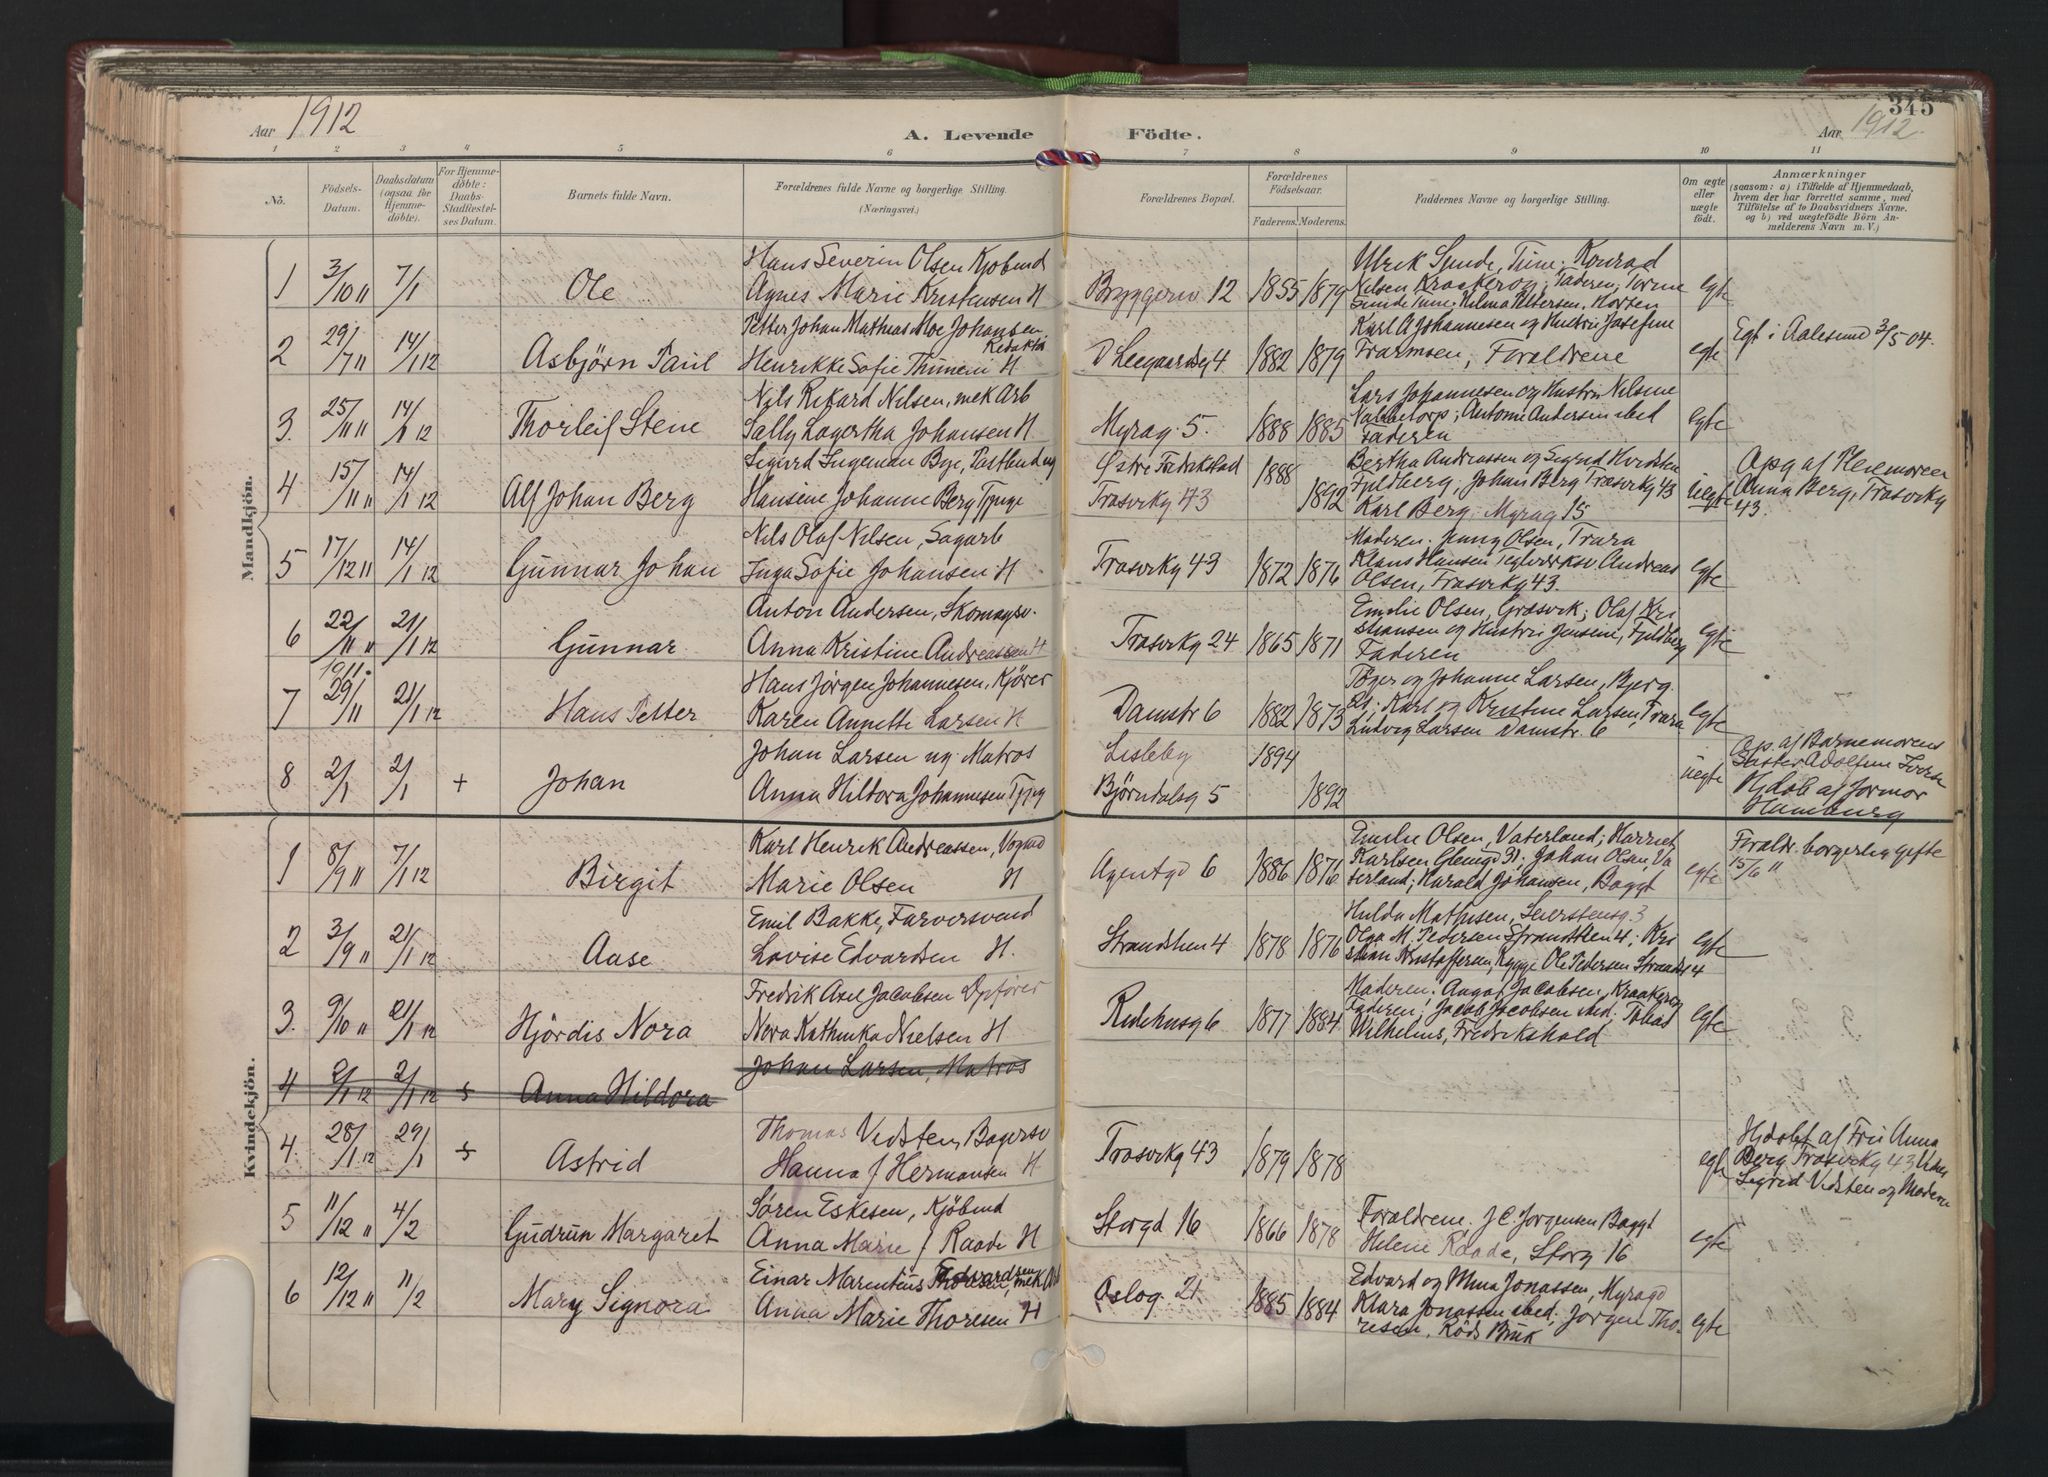 345
Aar 1912
A. Levende Födte.
Aar 1912.
1 2 3 4 5 6 7 8 9 10 11
No.
Födsels-Datum.
Daabsdatum (ogsaa for Hjemmedöbte).
For Hjemmedöbte: Daabs-Stadfæstelses Datum.
Barnets fulde Navn.
Forældrenes fulde Navne og borgerlige Stilling.
(Næringsvei.)
Forældrenes Bopæl.
Forældrenes Födselsaar.
Faderens. Moderens.
Faddernes Navne og borgerlige Stilling.
Om ægte eller uægte födt.
Anmærkninger
(saasom: a) i Tilfælde af Hjemmedaab, hvem der har forrettet samme, med Tilföielse af to Daabsvidners Navne. og b) ved uægtefödte Börn Anmelderens Navn m. V.)
Mandkjön.
1 3/10 " 7/1 Ole
Hans Severin Olsen Kjøbmd
Agnes Marie Kristensen H
Bryggeriv 12 1855 1879
Ulrik Sunde, Tune. Konrad
Nilsen Kraakerøy; Faderen; Torine
Sunde Tune. Hilma Pettersen. Horten
egte
2 29/7 " 14/1 12 Asbjörn Paul
Petter Johan Mathias Moe Johansen,
Redaktør
Henrikke Sofie Thimem H
D Leegaardsg 4 1882 1879
Karl A Johannesen og Hustru Josefine
Framnsen; Forældrene
egte
Egt i Aalesund 3/5 04.
3. 25/11 " 14/1 12 Thorleif Stene
Nils Rikard Nilsen, mek Arb
Sally Lagertha Johansen H
Myrag. 5. 1888 1885
Lars Johannesen og Hustru Nilsine
Nabbetorp; Antonie Andersen sbed
Faderen
egte
4 15/11 " 14/1 12 Alf Johan Berg
Sigurd Ingeman Bye, Postbud ug
Hansine Johanne Berg Tjpige
Østre Fredrikstad 1888
Trosvikg 43 1892
Bertha Andreassen og Sigrid
Fjeldberg, Johan Berg Trosvikg 43
Karl Berg, Myrag 15
uegte
Opg af
Anna Berg, Trosvikg
43.
5 17/12 " 14/1 12 Gunnar Johan
Nils Olaf Nilsen, Sagarb
Inga Sofie Johansen H
Trosvikg 43 1872 1876
Moderen. Jenny Olsen, Trara
Klaus Hansen Teglverksv Andreas
Olsen, Trosvikg 43.
egte
6 22/11 " 21/1 12 Gunnar
Anton Andersen, Skomagsv.
Anna Kristine Andreassen H
Trosvikg 24 1865 1871
Emilie Olsen, Græsvik; Olaf Kri
stiansen og Hustru Jensine, Fjeldberg
Faderen
egte
7 29/11 21/1 12 Hans Petter
Hans Jörgen Johannesen, Kjörer
Karen Annette Larsen H
Damstr 6 1882 1873
Tøger og Johanne Larsen, Bjerg.
Pl; Karl og Kristine Larsen, Trara
Ludvig Larsen Damstr. 6
egte
8 2/1 2/1 + Johan
Johan Larsen ug Matros
Anna Hildora Johannesen Tjpig
Lisleby 1894
Björndalsg 5 1892
uegte
Op. af Barnemorens
Søster Adolfine
Hjdøb af Jormor
Hamburg
Kvindekjön.
1 8/9 " 7/1 12 Birgit
Karl Henrik Andreassen, Vognmd
Marie Olsen H
Agentgd 6 1886 1876
Emilie Olsen, Vaterland; Harriet
Karlsen Glemge Pl. Johan Olsen, Va
terland; Harald Johansen, Baggt
egte
Foraldr. borgerlig gifte
15/6 "
2 3/9 " 21/1 12 Aase
Emil Bakke, Farversvend
Lovise Edvardsen H.
Strandstien 4 1878 1876
Hulda Mathisen, Leiestensg. 3
Olga M. Pedersen Strandstien 4; Kri
stian Kristoffersen, Rygge Ole Pedersen Strandst 4
egte
3. 9/10 " 21/1 12 Hjördis Nora
Fredrik Axel Jacobsen Opfører
Nora Kathinka Nielsen H
Ridehusg 6 1877 1884
Moderen. Aagot Jacobsen, Kraakerøy
Faderen; Jacob Jacobsen sbed. Tobias
Wilhelms, Fredrikshald
egte
4 2/1 12 2/1 12 + Anna Hildora
Johan Larsen, Matros
4. 28/1 12 29/1 + Astrid
Thomas Vedsten, Bagersv
Hanna f Hermansen H
Trosvikg 43 1879 1878
egte
Hjdøbt af Fru Anna
Berg Trosvikg 43
Sigrid Vedsten og Moderen
5 11/12 " 4/2 Gudrun Margaret
Søren Eskesen, Kjöbmd
Anna Marie f Raade H
Storgd 16 1866 1878
Foraldrene. J C. Jorgensen Baggt
Helene Raade, Storg 16
egte
6 12/12 " 11/2 Mary Signora
Einar Marentius Thoresen Edvardsen, mek Arb
Anna Marie Thoresen H
Oslog. 21. 1885 1884
Edvard og Mina Jonassen, Myragd
Klara Jonassen sbed. Jorgen Tho-
resen, Röds Bruk
egte